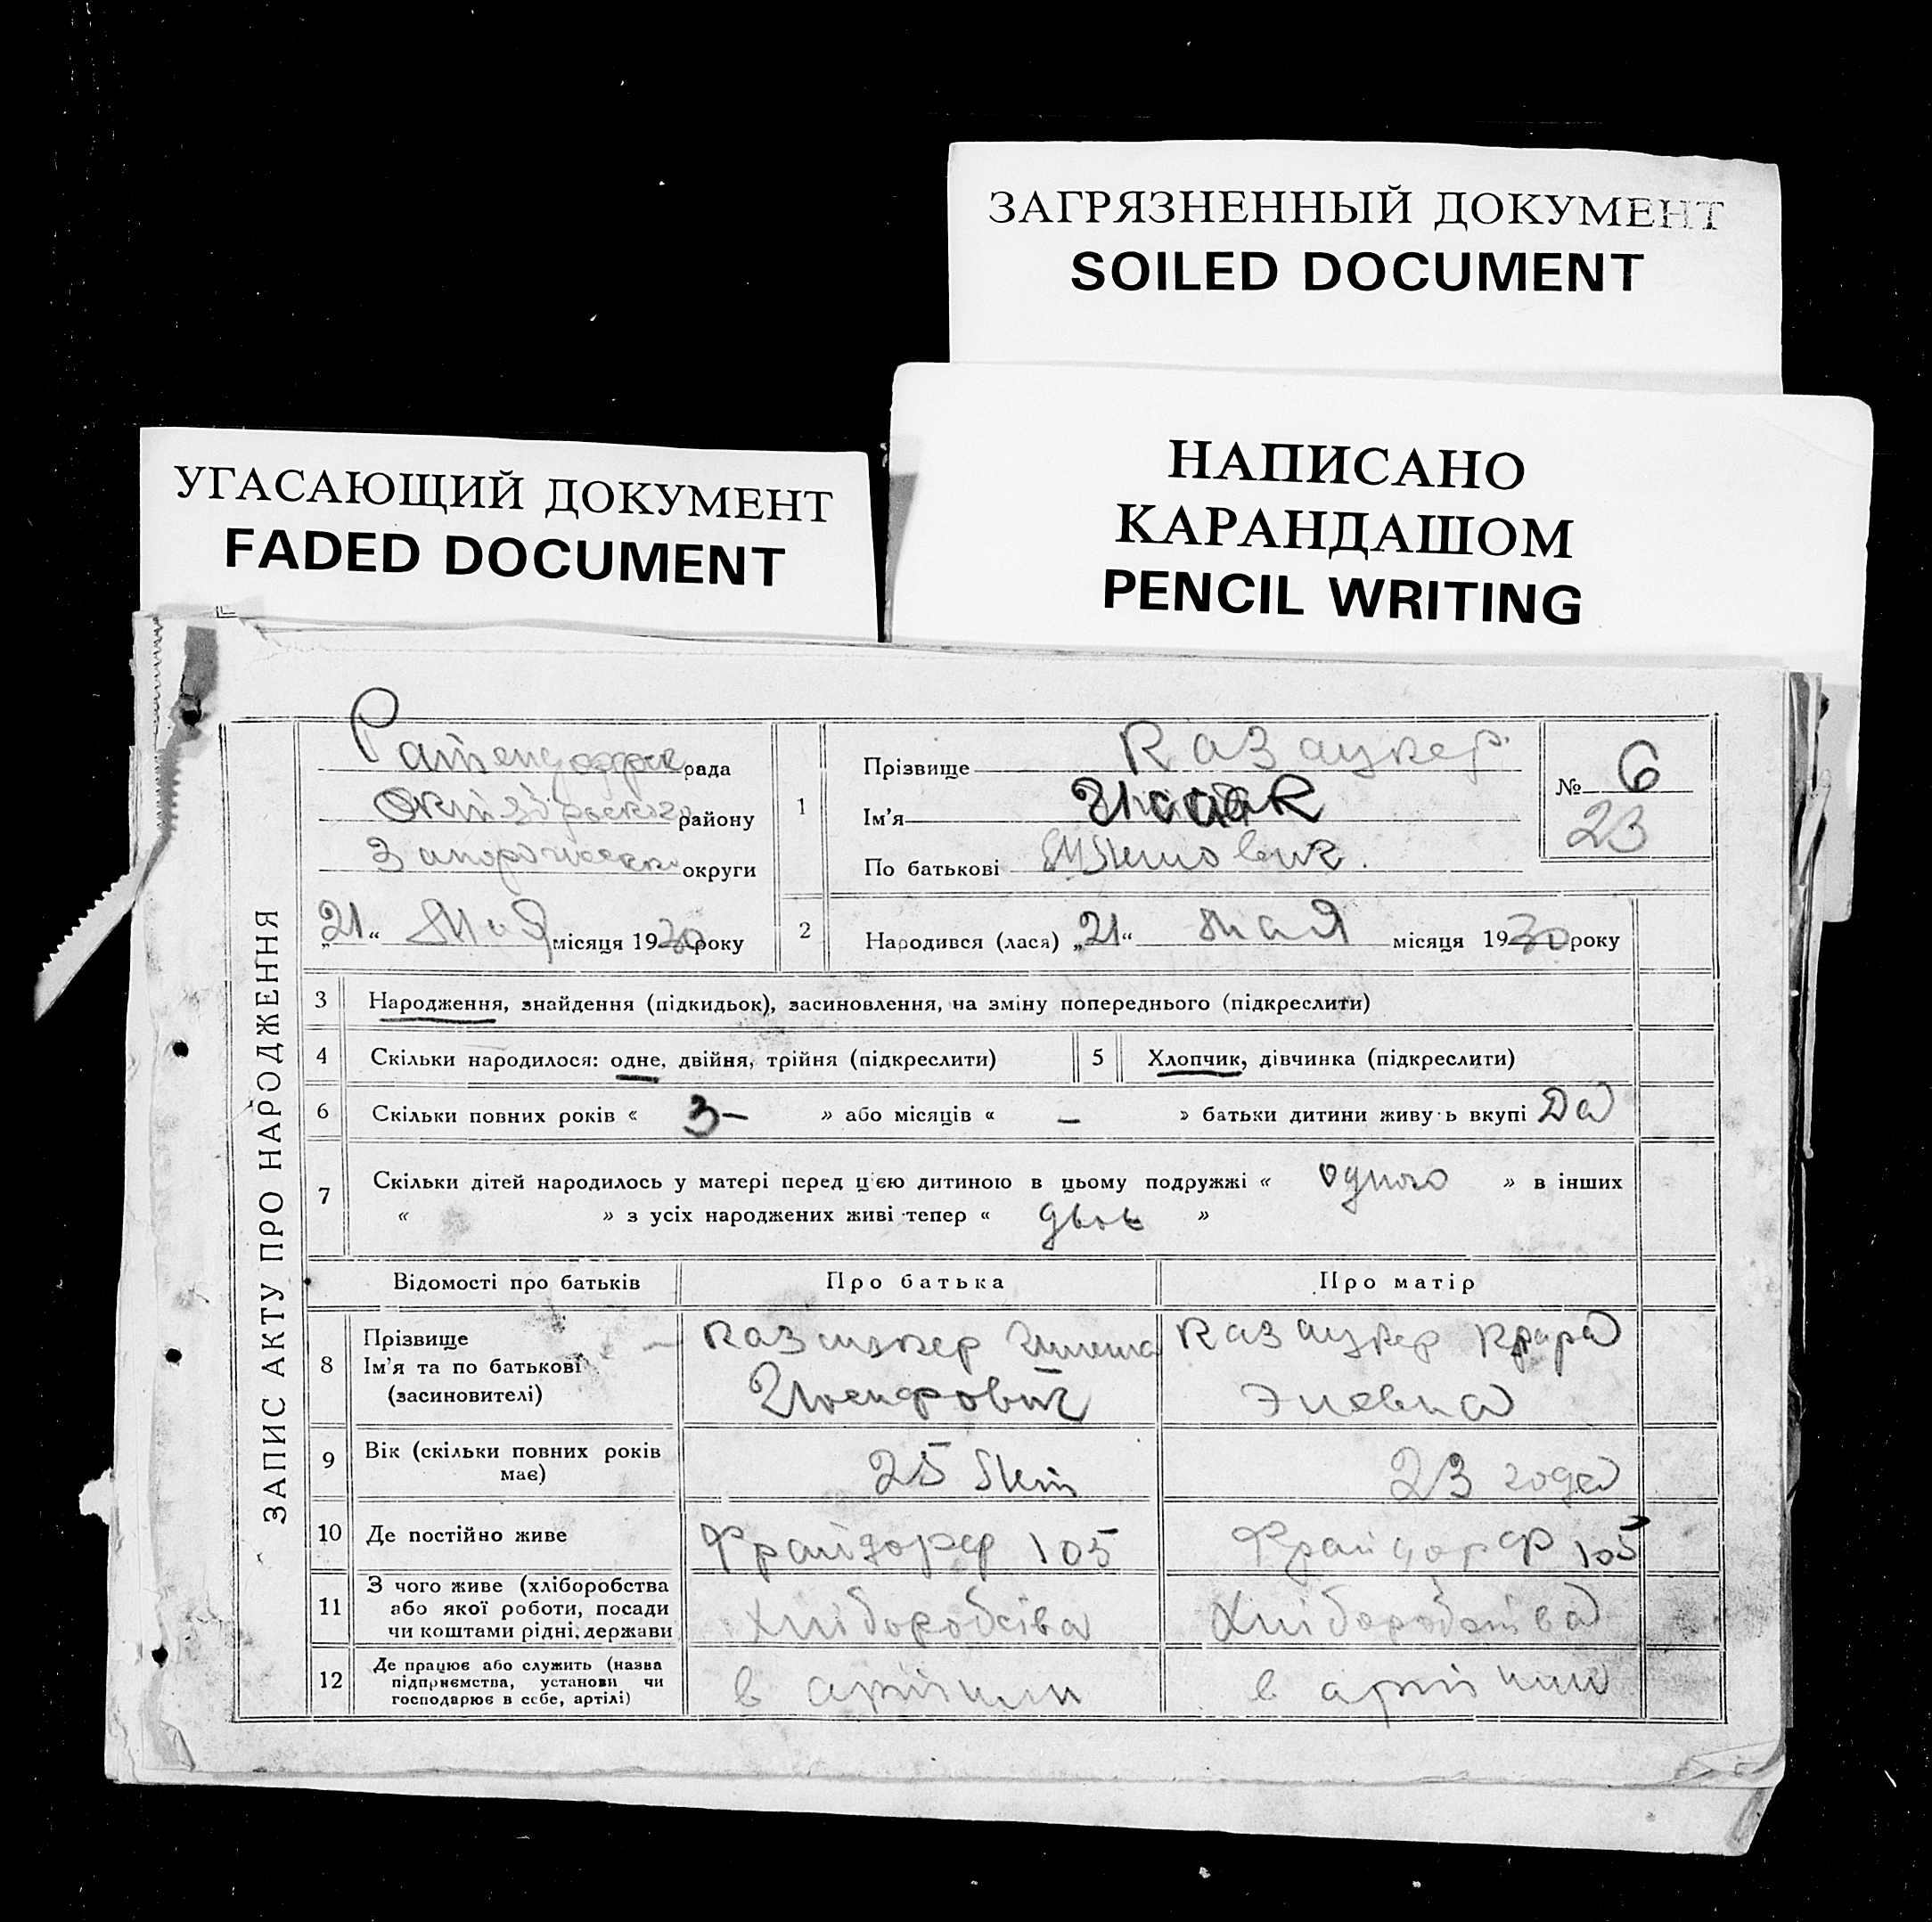 ЗАГРЯЗНЕННЫЙ ДОКУМЕНТ
SOILED DOCUMENT
НАПИСАНО
КАРАНДАШОМ
PENCIL WRITING
УГАСАЮЩИЙ ДОКУМЕНТ
FADED DOCUMENT
ЗАПИС АКТУ ПРО НАРОДЖЕННЯ
рада
району
округи
„21“ Мая місяця 1930 року
1
Прізвище Казацкер
Ім'я
По батькові
№ 6
23
2 Народився (лася) „21“ Мая місяця 1930 року
3 Народження, знайдення (підкидьок), засиновлення, на зміну попереднього (підкреслити)
4 Скільки народилося: одне, двійня, трійня (підкреслити) 5 Хлопчик, дівчинка (підкреслити)
6 Скільки повних років « 3– » або місяців « – » батьки дитини живуть вкупі Да
7 Скільки дітей народилось у матері перед цією дитиною в цьому подружжі « одного » в інших
« » з усіх народжених живі тепер « двое »
Відомості про батьків Про батька Про матір
8 Прізвище
Ім'я та по батькові
(засиновителі)
Казацкер
Иосифович
Казацкер Клара
9 Вік (скільки повних років
має) 25 лет 23 года
10 Де постійно живе Фрайдорф 105 Фрайдорф 105
11 З чого живе (хліборобства
або якої роботи, посади
чи коштами рідні, держави
Хліборобства Хліборобства
12 Де працює або служить (назва
підприємства, установи чи
господарює в себе, артілі)
в артили в артили